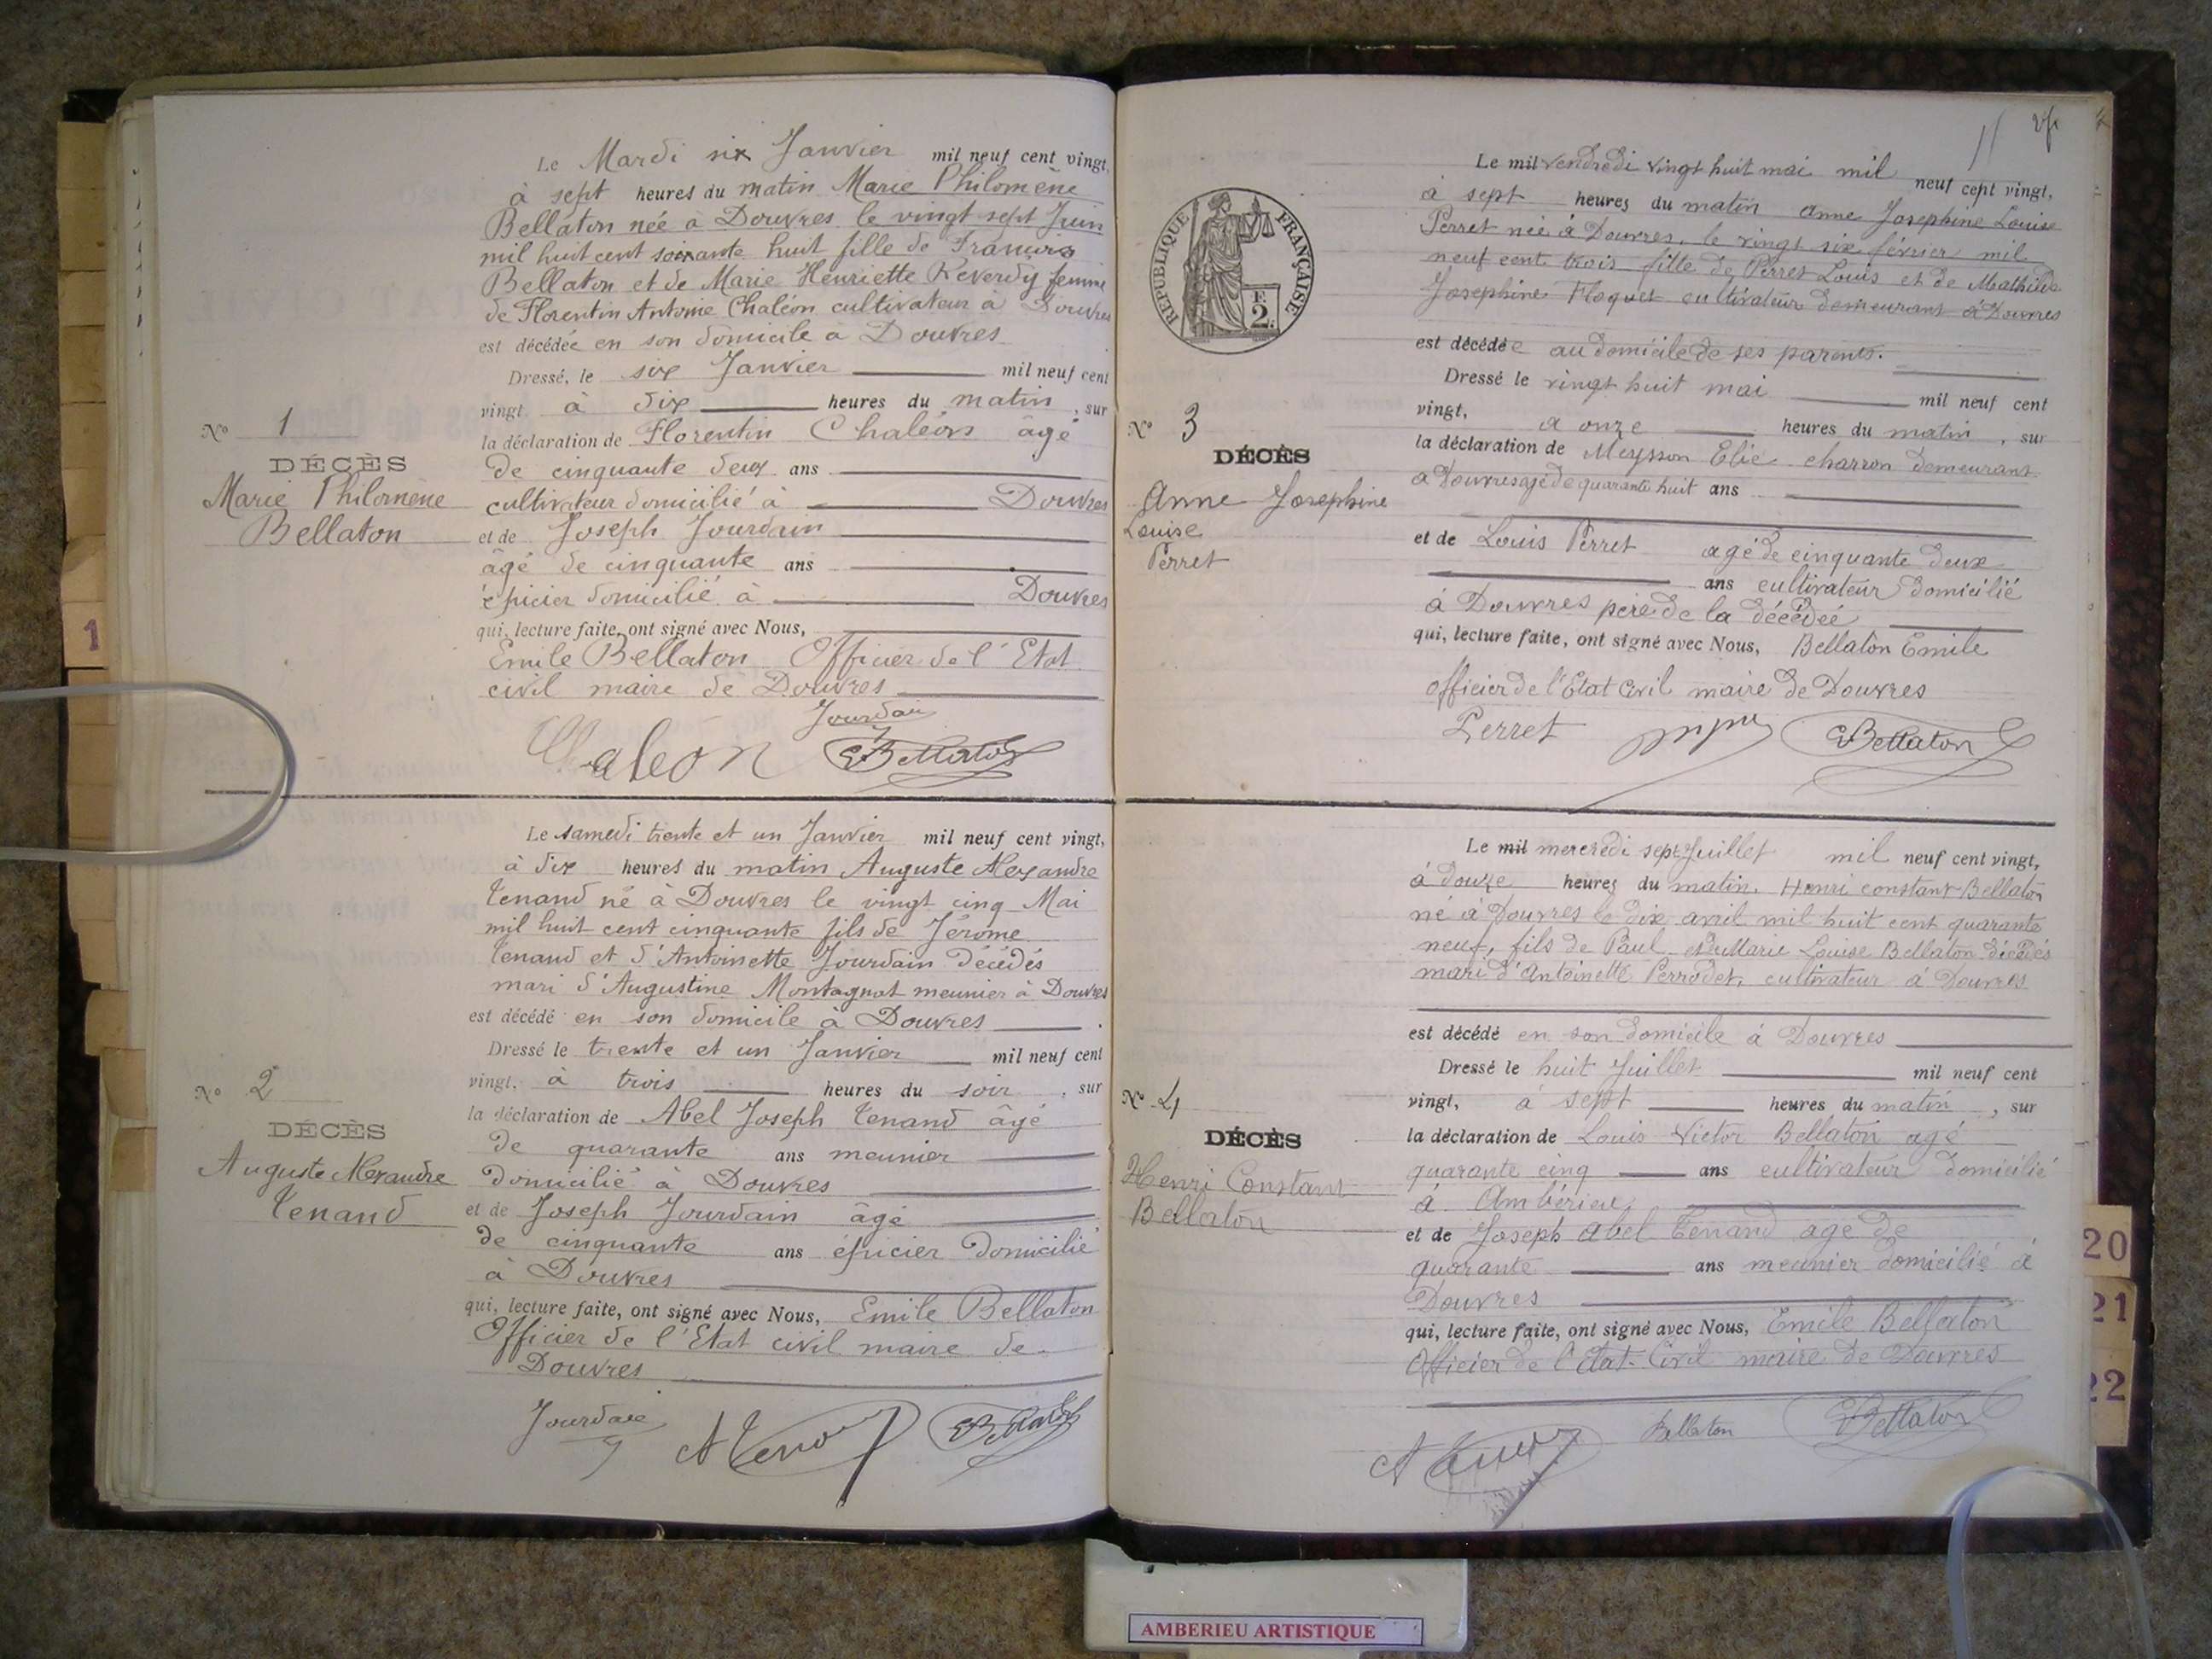 Le Mardi six Janvier mil neuf cent vingt,
à sept heures du matin Marie Philomène
Bellaton née à Douvres le vingt sept Juin
mil huit cent soixante huit fille de Francois
Bellaton et de Marie Henriette Reverdy femme
de Florentin Antoine Chaléon cultivateur à Douvres
est décédée en son domicile à Douvres
Dressé, le six Janvier mil neuf cent
vingt à dix heures du matin, sur
la déclaration de Florentin Chaléon âgé
de cinquante deux ans
cultivateur domicilié à Douvres
et de Joseph Jourdain
âgé de cinquante ans
épicier domicilié à Douvres
qui, lecture faite, ont signé avec Nous,
Emile Bellaton Officier de l'Etat
civil maire de Douvres
Jourdain
Chaleon EBellaton
No 1
DÉCÈS
Marie Philomène
Bellaton
Le samedi trente et un Janvier mil neuf cent vingt,
à dix heures du matin Auguste Alexandre
Tenand né à Douvres le vingt cinq Mai
mil huit cent cinquante fils de Jérome
Tenand et d'Antoinette Jourdain décédés
mari d'Augustine Montagnat meunier à Douvres
est décédé en son domicile à Douvres
Dressé le trente et un Janvier mil neuf cent
vingt, à trois heures du soir, sur
la déclaration de Abel Joseph Tenand âgé
de quarante ans meunier
domicilié à Douvres
et de Joseph Jourdain âgé
de cinquante ans épicier domicilié
à Douvres
qui, lecture faite, ont signé avec Nous, Emile Bellaton
Officier de l'Etat civil maire de
Douvres
Jourdain A Tenand EBellaton
No 2
DÉCÈS
Auguste Alexandre
Tenand
1
Le mil vendredi vingt huit mai mil neuf cent vingt,
à sept heures du matin Anne Josephine Louise
Perret née à Douvres, le vingt six février mil
neuf cent trois fille de Perret Louis et de Mathilde
Josephine Floquet cultivateur demeurant à Douvres
est décédée au domicile de ses parents.
Dressé le vingt huit mai mil neuf cent
vingt, à onze heures du matin, sur
la déclaration de Meysson Elie charron demeurant
à Douvres agé de quarante huit ans
et de Louis Perret agé de cinquante deux
ans cultivateur domicilié
à Douvres père de la décédée
qui, lecture faite, ont signé avec Nous, Bellaton Emile
officier de l'Etat Civil maire de Douvres
Perret EBellaton
REPUBLIQUE FRANÇAISE
2 F.
No 3
DÉCÈS
Anne Josephine
Louise
Perret
Le mil mercredi sept Juillet mil neuf cent vingt,
à douze heures du matin, Henri constant Bellaton
né à Douvres le dix avril mil huit cent quarante
neuf, fils de Paul et de Marie Louise Bellaton décédés
mari d'Antoinette Perrodet, cultivateur à Douvres
est décédé en son domicile à Douvres
Dressé le huit Juillet mil neuf cent
vingt, à sept heures du matin, sur
la déclaration de Louis Victor Bellaton agé
quarante cinq ans cultivateur domicilié
à Ambérieu
et de Joseph Abel Tenand agé de
quarante ans meunier domicilié à
Douvres
qui, lecture faite, ont signé avec Nous, Emile Bellaton
Officier de l'état Civil maire de Douvres
A Tenand Bellaton EBellaton
No 4
DÉCÈS
Henri Constant
Bellaton
20
21
22
AMBERIEU ARTISTIQUE